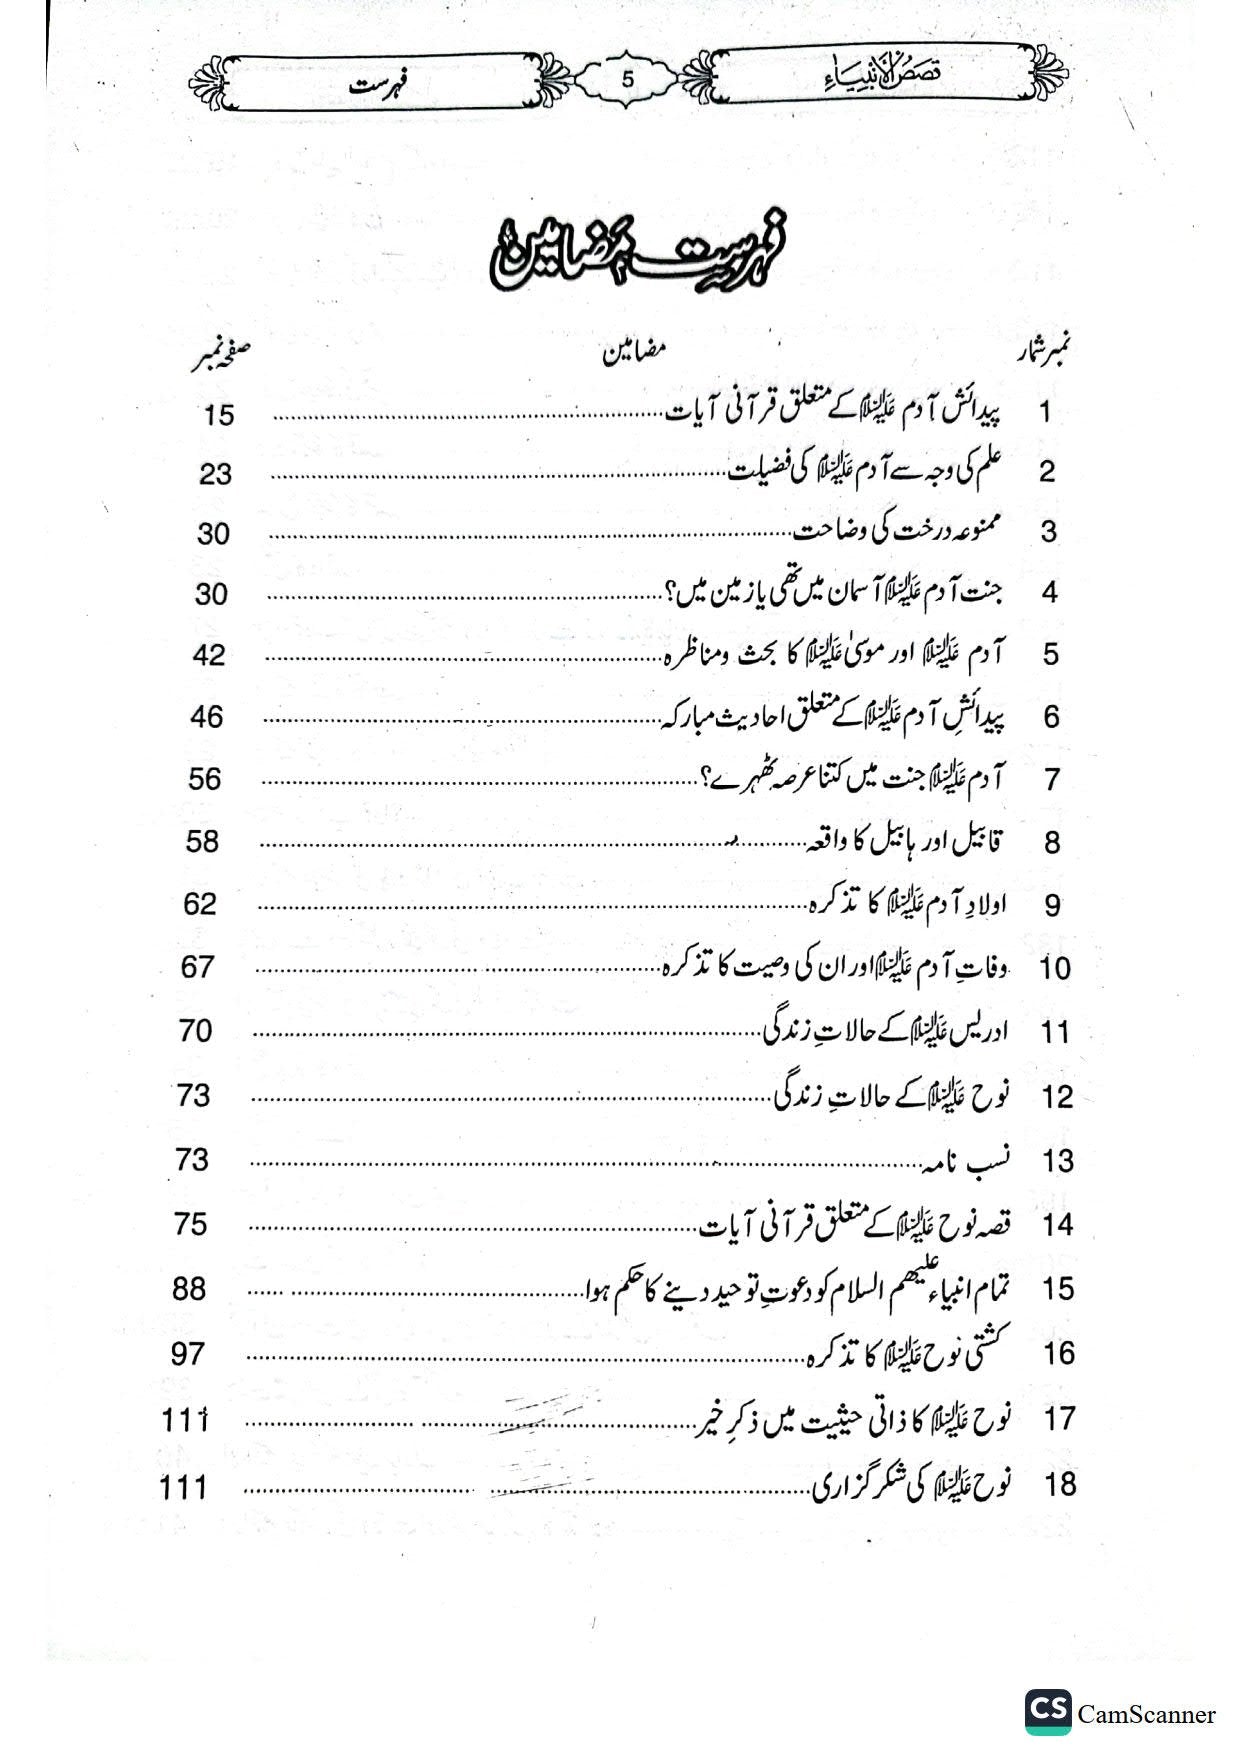 قصص الانبیاء 5 فہرست
فہرست مضامین
نمبر شمار مضامین صفحہ نمبر
1 پیدائش آدم علیہ السلام کے متعلق قرآنی آیات 15
2 علم کی وجہ سے آدم علیہ السلام کی فضیلت 23
3 ممنوعہ درخت کی وضاحت 30
4 جنت آدم علیہ السلام آسمان میں تھی یا زمین میں؟ 30
5 آدم علیہ السلام اور موسیٰ علیہ السلام کا بحث ومناظرہ 42
6 پیدائشِ آدم علیہ السلام کے متعلق احادیث مبارکہ 46
7 آدم علیہ السلام جنت میں کتنا عرصہ ٹھہرے؟ 56
8 قابیل اور ہابیل کا واقعہ 58
9 اولادِ آدم علیہ السلام کا تذکرہ 62
10 وفاتِ آدم علیہ السلام اور ان کی وصیت کا تذکرہ 67
11 ادریس علیہ السلام کے حالاتِ زندگی 70
12 نوح علیہ السلام کے حالاتِ زندگی 73
13 نسب نامہ 73
14 قصہ نوح علیہ السلام کے متعلق قرآنی آیات 75
15 تمام انبیاء علیھم السلام کو دعوتِ توحید دینے کا حکم ہوا 88
16 کشتی نوح علیہ السلام کا تذکرہ 97
17 نوح علیہ السلام کا ذاتی حیثیت میں ذکرِ خیر 111
18 نوح علیہ السلام کی شکر گزاری 111
CS CamScanner